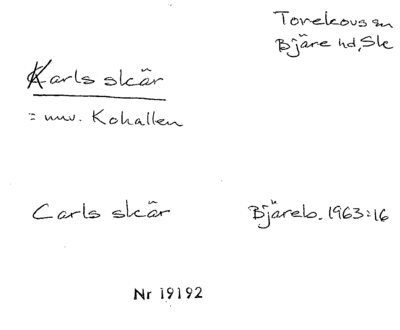 Torekovs sn
Bjäre hd, Sk
Karls skär
= nuv. Kohallen
Carls skär
Bjäreb. 1963:16
Nr 19192